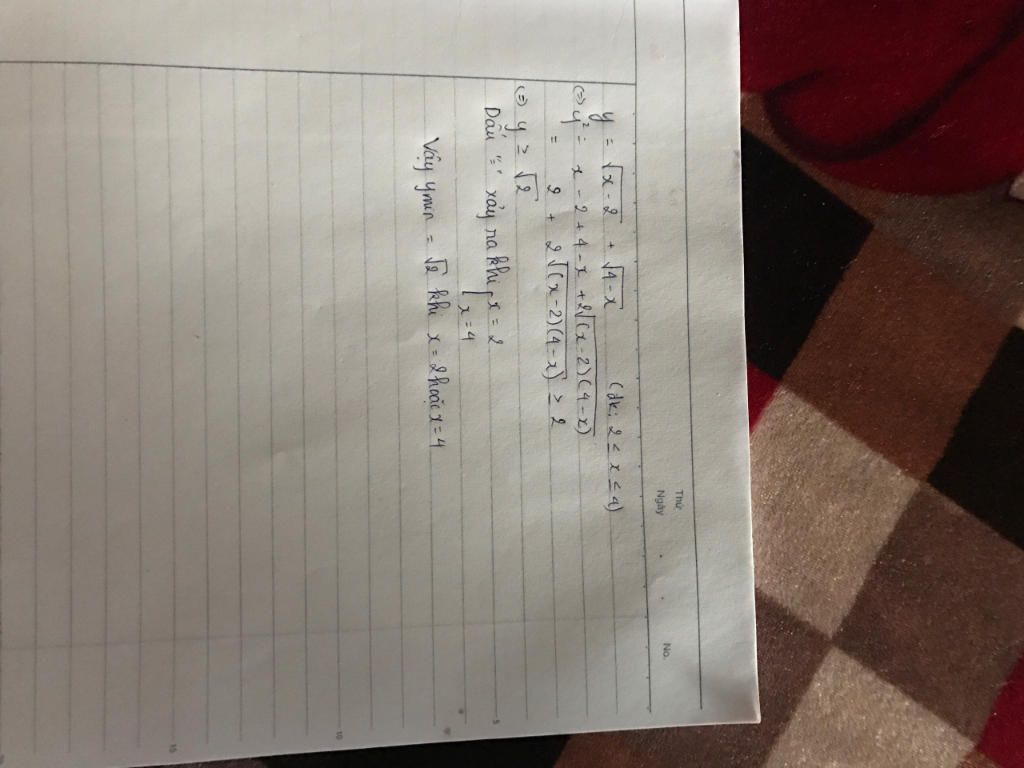 Thứ
Ngày
No.
y = √(x - 2) + √(4 - x) (đk: 2 ≤ x ≤ 4)
(=) y² = x - 2 + 4 - x + 2√((x - 2)(4 - x))
= 2 + 2√((x - 2)(4 - x)) > 2
(=) y ≥ √2
Dấu "=" xảy ra khi [x = 2
x = 4
Vậy ymin = √2 khi x = 2 hoặc x = 4
5
10
15